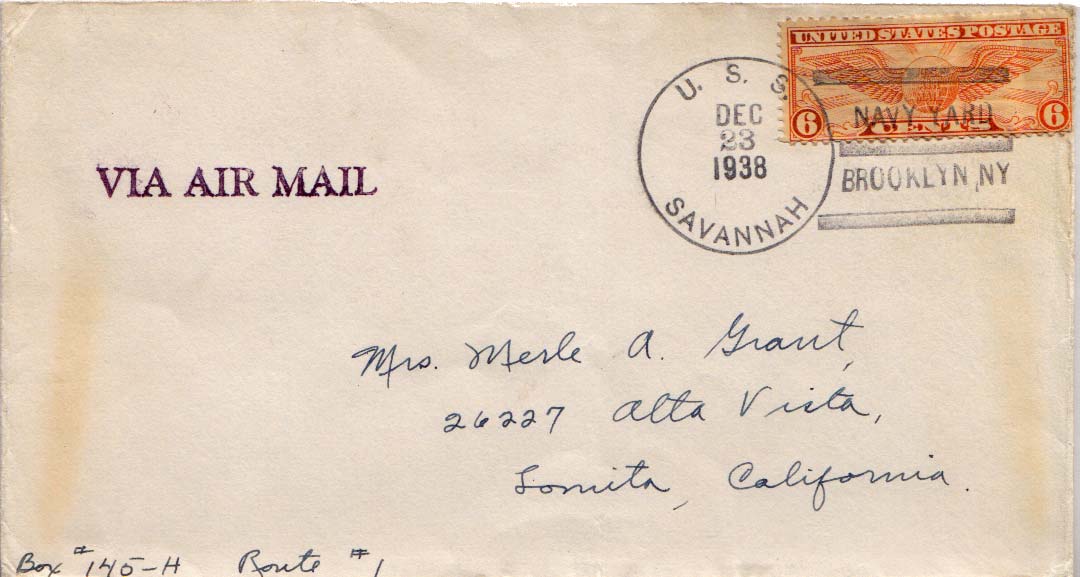 UNITED STATES POSTAGE
6 CENTS 6
U. S. S. SAVANNAH
DEC
23
1938
NAVY YARD
BROOKLYN, NY
VIA AIR MAIL
Mrs. Merle A. Grant,
26227 Alta Vista,
Lomita, California.
Box #145-H Route #1